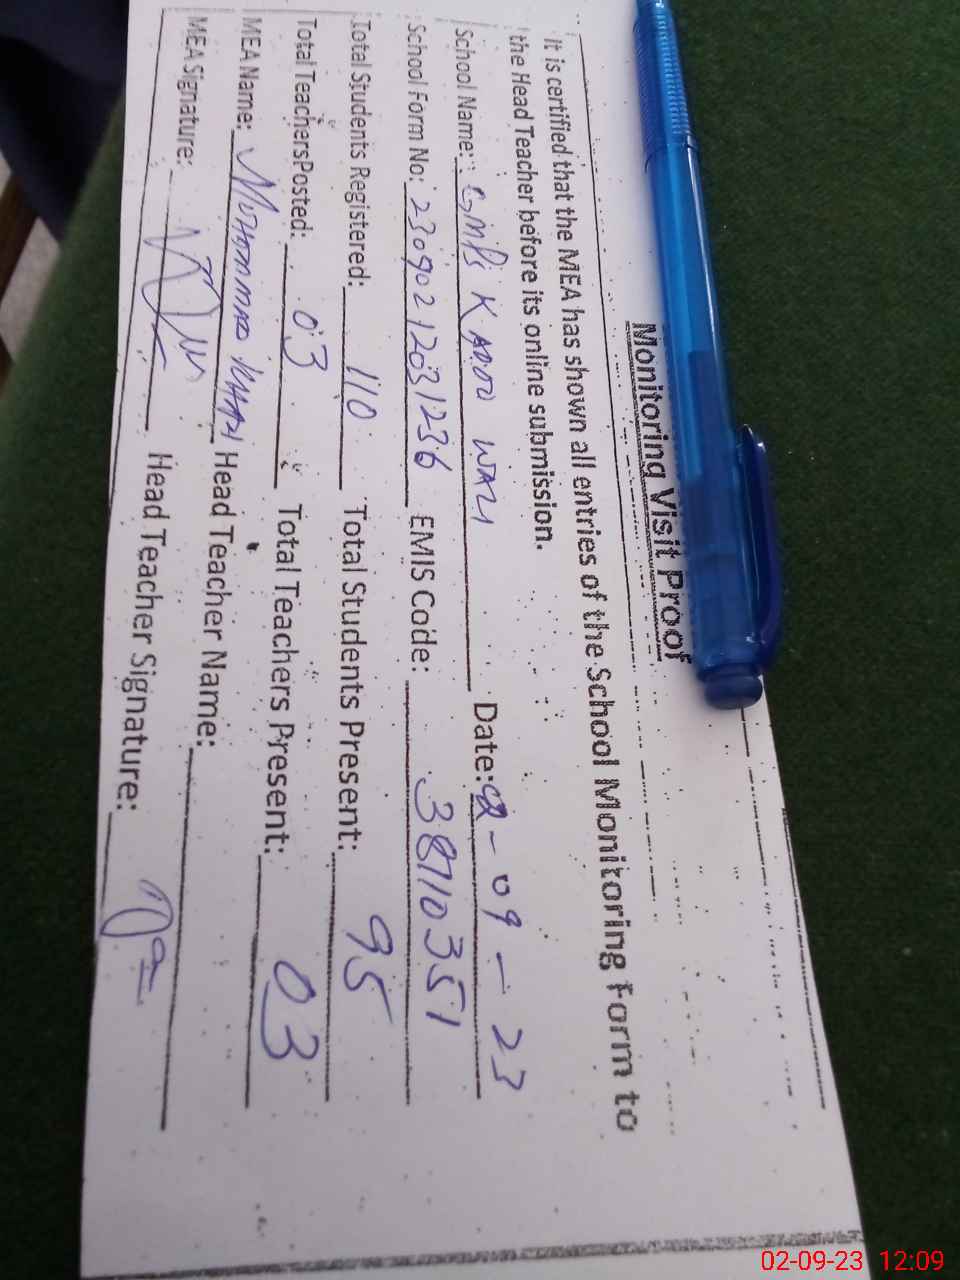 Monitoring Visit Proof
It is certified that the MEA has shown all entries of the School Monitoring Form to
the Head Teacher before its online submission.
School Name: GMPS KADOO WALI Date: 02-09-23
School Form No: 2309021203 1236 EMIS Code: 38710351
Total Students Registered: 110 Total Students Present: 95
Total Teachers Posted: 03 Total Teachers Present: 03
MEA Name: MUHAMMAD KHAN Head Teacher Name:
MEA Signature: Head Teacher Signature:
02-09-23 12:09